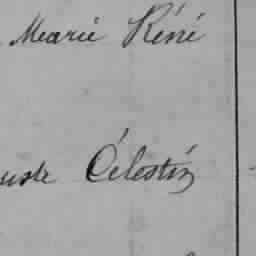 Marie Réné
uste Célestin